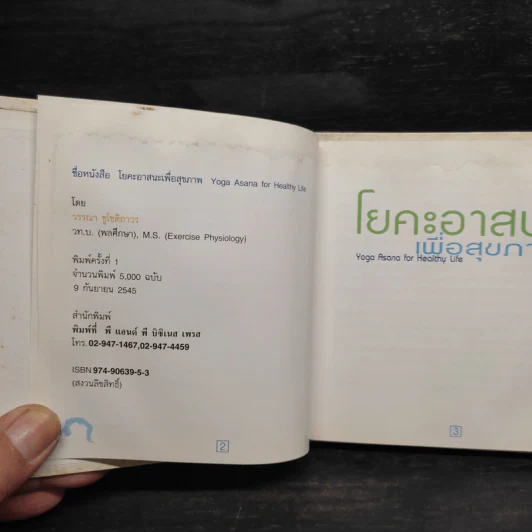 ชื่อหนังสือ โยคะอาสนะเพื่อสุขภาพ Yoga Asana for Healthy Life
โดย
วรรณา ชูโชติถาวร
วท.บ. (พลศึกษา), M.S. (Exercise Physiology)
พิมพ์ครั้งที่ 1
จำนวนพิมพ์ 5,000 ฉบับ
9 กันยายน 2545
สำนักพิมพ์
พิมพ์ที่ พี แอนด์ พี บิซิเนส เพรส
โทร. 02-947-1467,02-947-4459
ISBN 974-90639-5-3
(สงวนลิขสิทธิ์)
2
โยคะอาสน
เพื่อสุขภา
Yoga Asana for Healthy Life
3